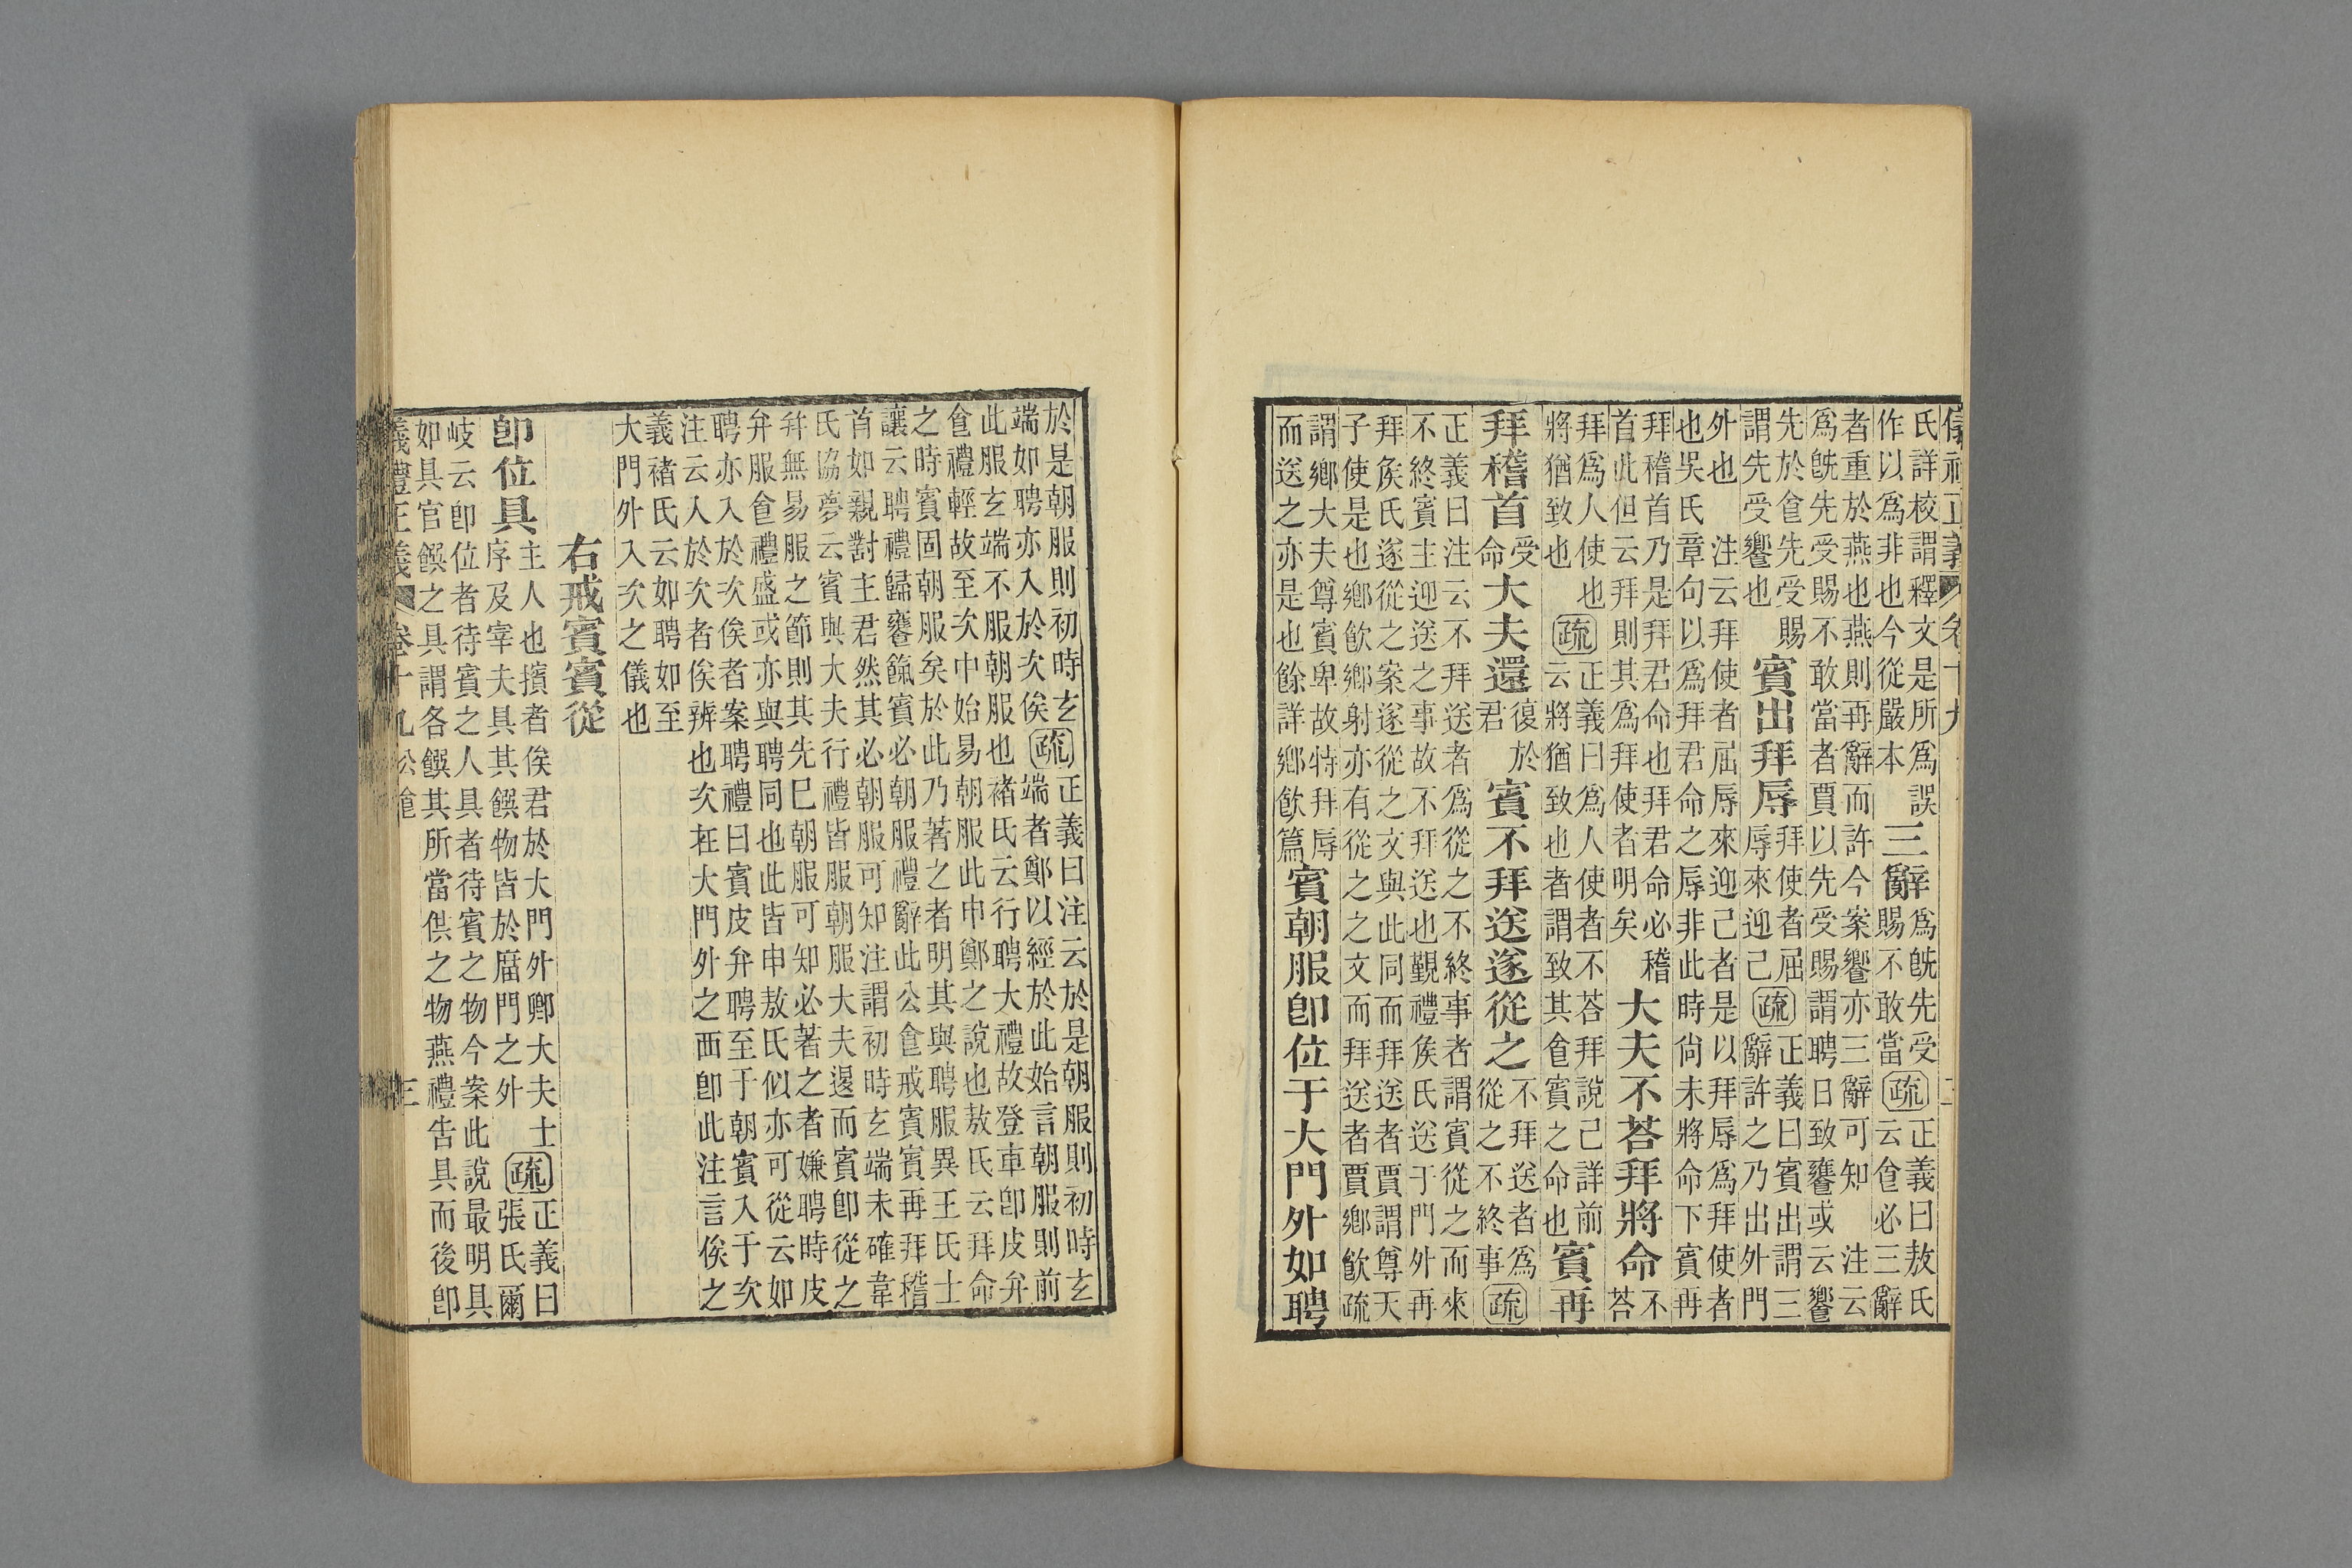 儀禮正義 卷十九 二
氏詳校謂釋文是所爲誤
作以爲非也今從嚴本
三辭
爲旣先受
賜不敢當
疏
正義曰敖氏
云食必三辭
者重於燕也燕則再辭而許今案饗亦三辭可知 注云
爲旣先受賜不敢當者賈以先受賜謂聘日致饔或云饗
先於食先受賜
謂先受饗也
賓出拜辱
拜使者屈
辱來迎己
疏
正義曰賓出謂三
辭許之乃出外門
外也 注云拜使者屈辱來迎己者是以拜辱爲拜使者
也吳氏章句以爲拜君命之辱非此時尙未將命下賓再
拜稽首乃是拜君命也拜君命必稽
首此但云拜則其爲拜使者明矣
大夫不荅拜將命
不
荅
拜爲人使也
將猶致也
疏
正義曰爲人使者不荅拜說己詳前
云將猶致也者謂致其食賓之命也
賓再
拜稽首
受
命
大夫還
復於
君
賓不拜送遂從之
不拜送者爲
從之不終事
疏
正義曰注云不拜送者爲從之不終事者謂賓從之而來
不終賓主迎送之事故不拜送也覲禮矦氏送于門外再
拜矦氏遂從之案遂從之文與此同而拜送者賈謂尊天
子使是也鄉飮鄉射亦有從之之文而拜送者賈鄉飮疏
謂鄉大夫尊賓卑故特拜辱
而送之亦是也餘詳鄉飮篇
賓朝服卽位于大門外如聘
於是朝服則初時玄
端如聘亦入於次俟
疏
正義曰注云於是朝服則初時玄
端者鄭以經於此始言朝服則前
此服玄端不服朝服也褚氏云行聘大禮故登車卽皮弁
食禮輕故至次中始易朝服此申鄭之說也敖氏云拜命
之時賓固朝服矣於此乃著之者明其與聘服異王氏士
讓云聘禮歸饔餼賓必朝服禮辭此公食戒賓賓再拜稽
首如親對主君然其必朝服可知注謂初時玄端未確韋
氏協夢云賓與大夫行禮皆服朝服大夫還而賓卽從之
幷無易服之節則其先已朝服可知必著之者嫌聘時皮
弁服食禮盛或亦與聘同也此皆申敖氏似亦可從云如
聘亦入於次俟者案聘禮曰賓皮弁聘至于朝賓入于次
注云入於次者俟辨也次在大門外之西卽此注言俟之
義褚氏云如聘如至
大門外入次之儀也
右戒賓賓從
卽位具
主人也擯者俟君於大門外卿大夫士
序及宰夫具其饌物皆於廟門之外
疏
正義曰
張氏爾
岐云卽位者待賓之人具者待賓之物今案此說最明具
如具官饌之具謂各饌其所當供之物燕禮告具而後卽
義禮正義 卷十九 公食 三